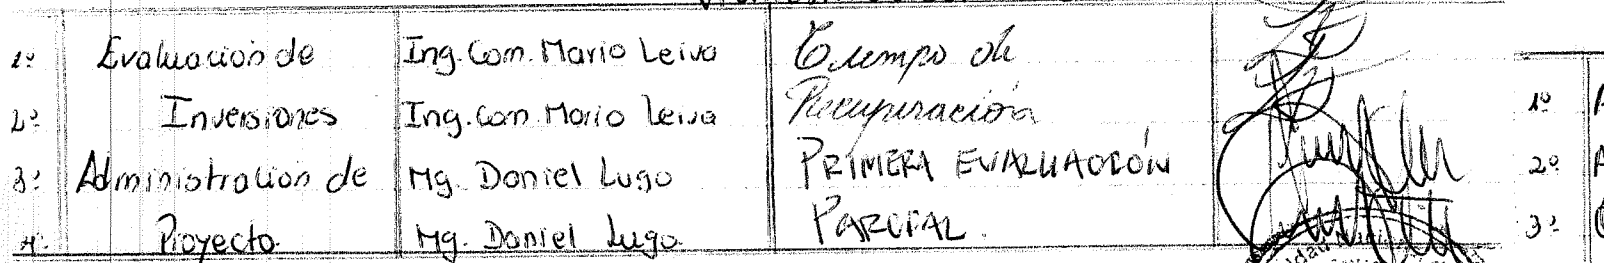 1º Evaluación de Ing. Com. Mario Leiva Tiempo de
2º Inversiones Ing. Com. Mario Leiva Recuperación
3º Administración de Mg. Daniel Lugo PRIMERA EVALUACIÓN
4º Proyecto Mg. Daniel Lugo PARCIAL.
1º
2º
3º